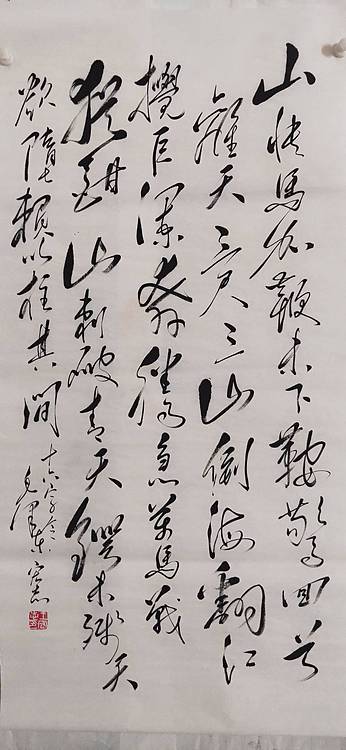 山快馬加鞭未下鞍驚回首
離天三尺三山倒海翻江
攪巨瀾奔騰急萬馬戰
猶酣山刺破青天鍔未殘天
欲墮賴以柱其間
十六字令
毛澤東